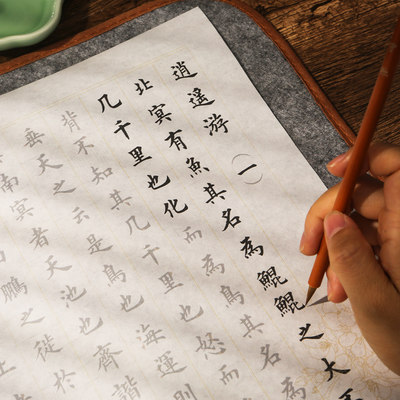 逍遥游（一）
北冥有魚其名為鯤鯤之大
几千里也化而為鳥其名為
背不知其几千里也怒而
垂天之云是鳥也海運則
南冥者天池也齊諧
鵬之徙於